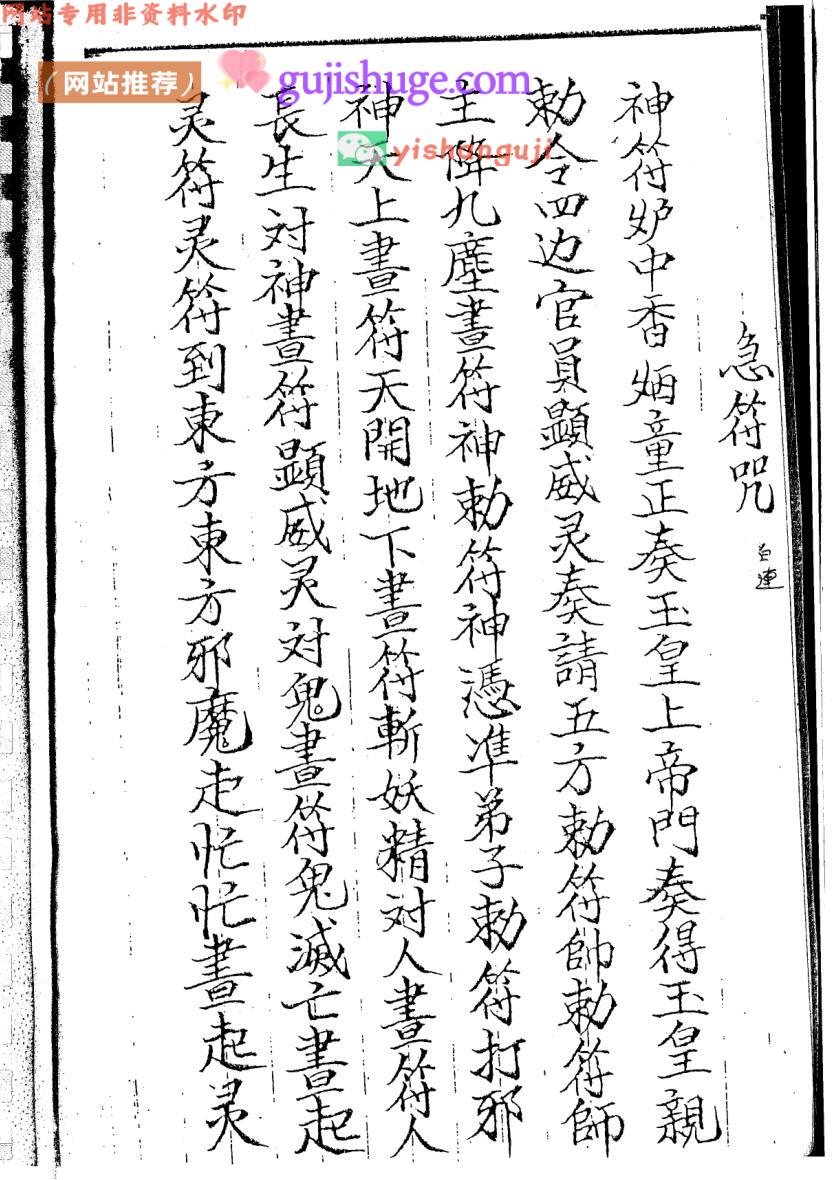 网站专用非资料水印
（网站推荐）
gujishuge.com
yishanguji
急符咒
白連
神符炉中香烟童正奏玉皇上帝門奏得玉皇親
勅令四边官員顕威灵奏請五方勅符帥勅符師
主降九塵畫符神勅符神憑準弟子勅符打邪
神天上畫符天開地下畫符斬妖精对人畫符人
長生対神畫符顕威灵対鬼畫符鬼滅亡畫起
灵符灵符到東方東方邪魔走忙忙畫起灵